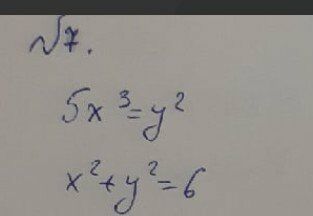 №7.
5x³=y²
x²+y²=6